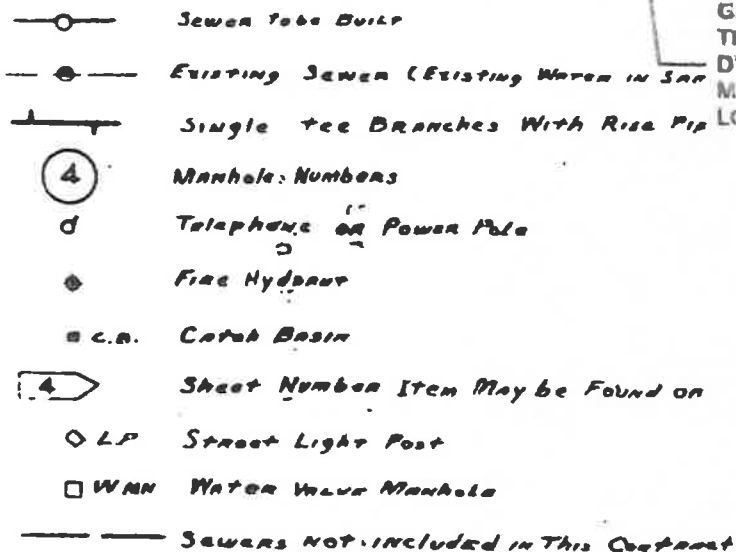 Sewer To be Built
Existing Sewer (Existing Water in San
Single Tee Branches With Rise Pip
4 Manhole Numbers
Telephone or Power Pole
Fire Hydrant
C.B. Catch Basin
4 Sheet Number Item May be Found on
LP Street Light Post
WMH Water Valve Manhole
Sewers Not Included in This Contract